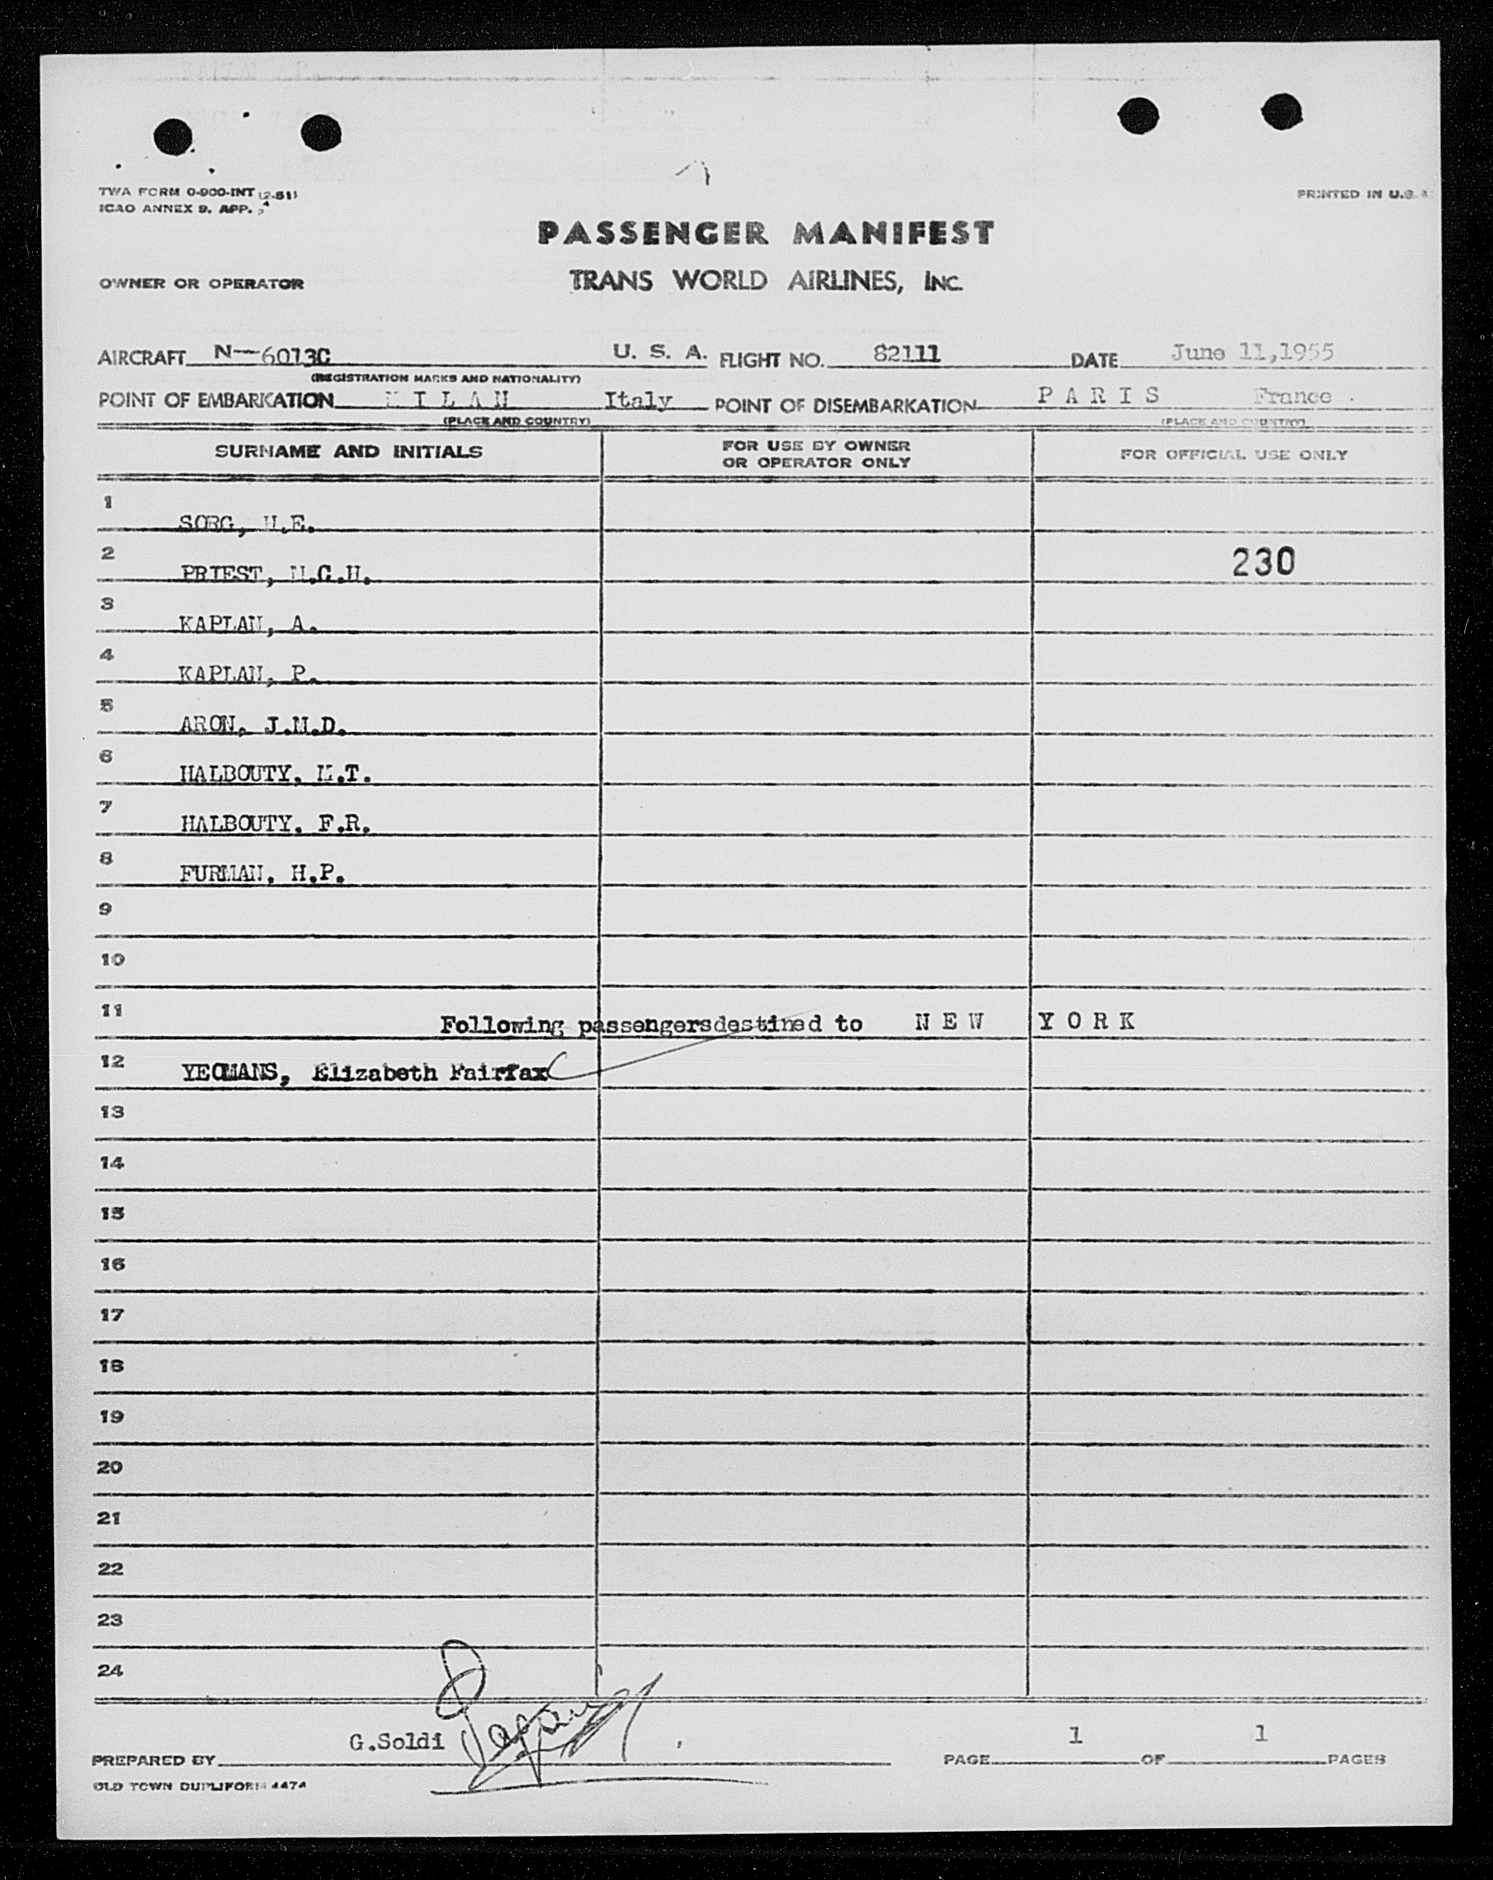 TWA FORM 0-900-INT (2-51)
ICAO ANNEX 9, APP. 4
PRINTED IN U.S.A.
PASSENGER MANIFEST
OWNER OR OPERATOR TRANS WORLD AIRLINES, INC.
AIRCRAFT N-6013C U. S. A. FLIGHT NO. 82111 DATE June 11,1955
(REGISTRATION MARKS AND NATIONALITY)
POINT OF EMBARKATION M I L A N Italy POINT OF DISEMBARKATION P A R I S France
(PLACE AND COUNTRY) (PLACE AND COUNTRY)
SURNAME AND INITIALS FOR USE BY OWNER OR OPERATOR ONLY FOR OFFICIAL USE ONLY
1 SORG, H.E.
2 PRIEST, 230
3 KAPLAN, A.
4 KAPLAN, P.
5 ARON, J.M.D.
6 HALBOUTY, M.T.
7 HALBOUTY, F.R.
8 FURMAN, H.P.
9
10
11 Following passengersdestined to N E W Y O R K
12 YEOMANS, Elizabeth Fairfax
13
14
15
16
17
18
19
20
21
22
23
24
PREPARED BY G.Soldi PAGE 1 OF 1 PAGES
OLD TOWN DUPLIFORM 4474